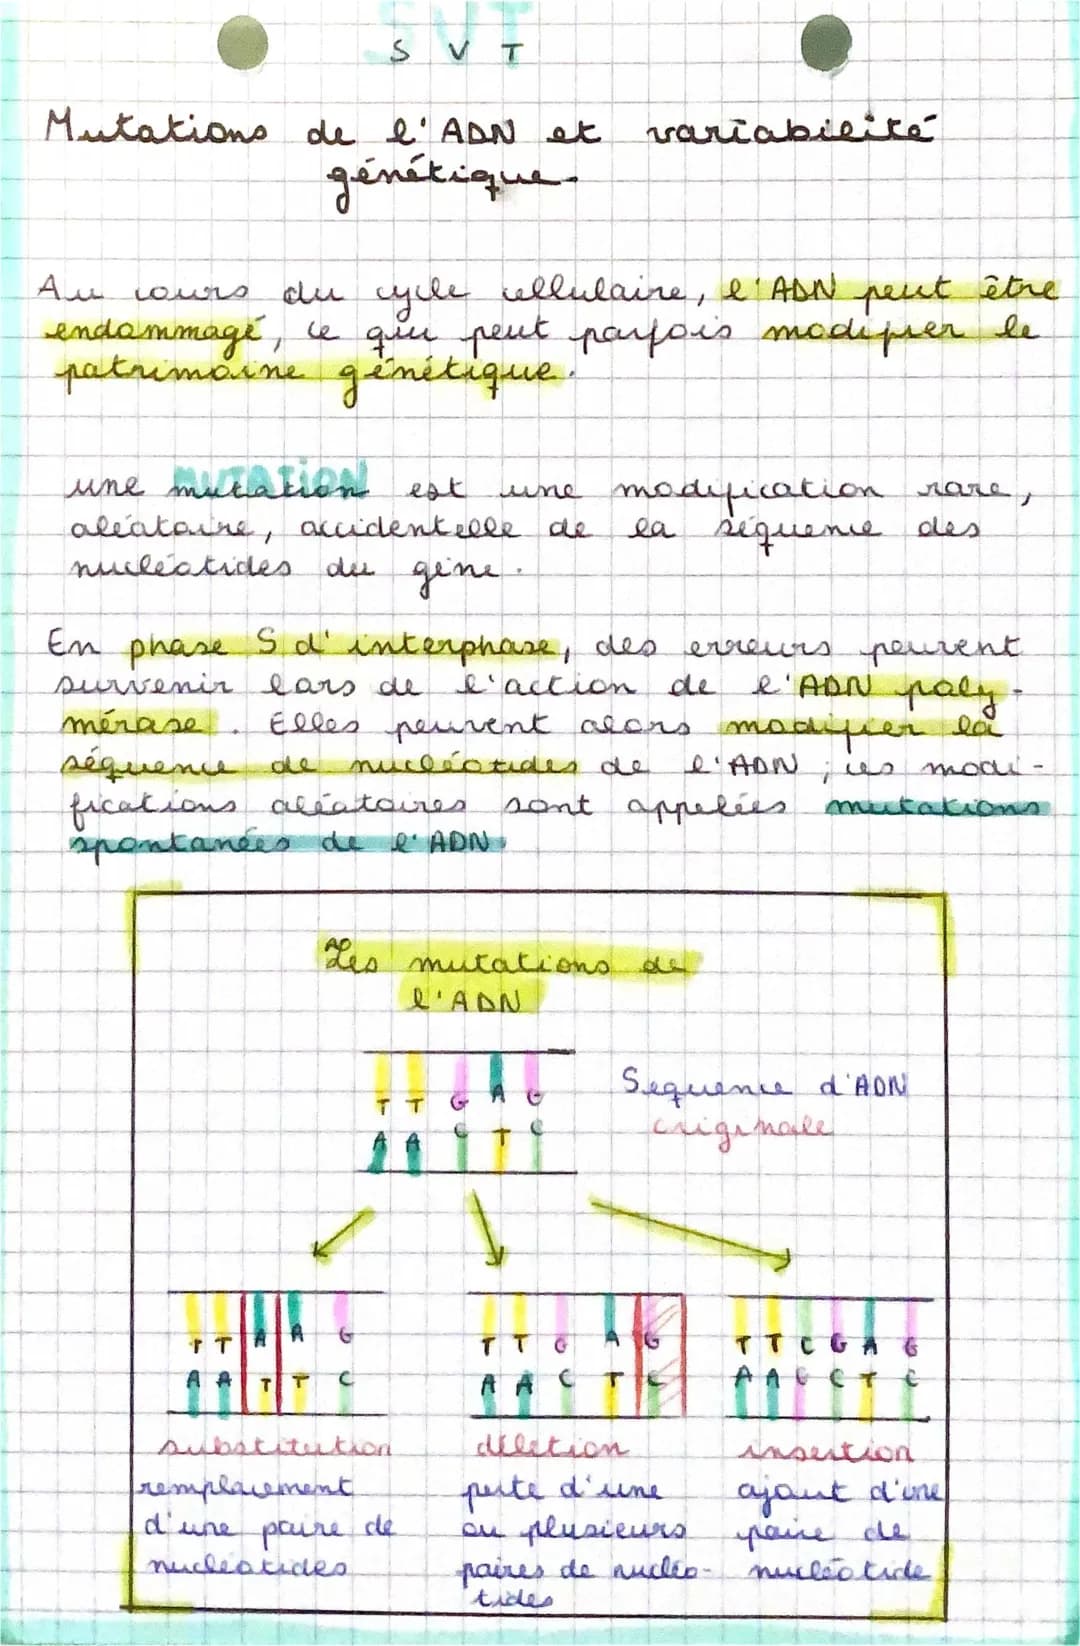 SVT
S V T
Mutations de l'ADN et variabilité
génétique.
Au cours du cycle cellulaire, l'ADN peut être
endommagé, ce qui peut parfois modifier le
patrimoine génétique.
MUTATION
une mutation est une modification rare,
aléatoire, accidentelle de la séquence des
nucléotides du gène.
En phase S d'interphase, des erreurs peuvent
survenir lors de l'action de l'ADN poly-
mérase. Elles peuvent alors modifier la
séquence de nucléotides de l'ADN ; ces modi-
fications aléatoires sont appelées mutations
spontanées de l'ADN.
Les mutations de
l'ADN
T T G A G
A A C T C
Séquence d'ADN
originale
T T A A G
A A T T C
substitution
remplacement
d'une paire de
nucléotides
T T G A G
A A C T C
délétion
perte d'une
ou plusieurs
paires de nucléo-
tides
T T C G A G
A A G C T C
insertion
ajout d'une
paire de
nucléotide